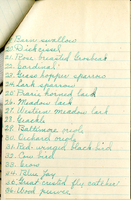 Barn swallow
20. Dickcissel
21. Rose breasted Grosbeak
22. Cardinal
23. Grass hopper sparrow
24. Lark sparrow
25. Prairie horned lark
26. Meadow lark
27. Western meadow lark
28. Grackle
29. Baltimore oriole
30. Orchard oriole
31. Red-winged black bird
32. Cow bird
33. Crow
34. Blue Jay
35. Great crested fly catcher
36. Wood pewee